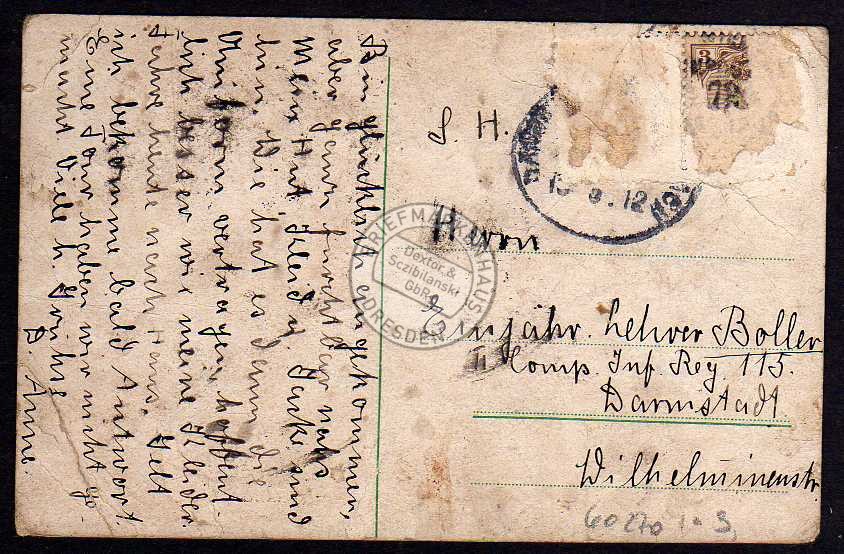 Bin glücklich angekommen,
aber ganz furchtbar nass
mein Hut, Kleid u. Jacke und
bin. Wie hat es dann die
Uniform vertragen, hoffent-
lich besser wie meine Kleider
fahre heute nach Hans. Jetzt
ich bekomme bald Antwort.
Eine Tour haben wir nicht ge-
macht Viele h. Grüsse
D. Anne.
S. H.
Herrn
Einjähr. Lehrer Boller
Comp. Inf. Reg. 115.
Darmstadt
Wilhelminenstr
60270 1-3
3
12
BRIEFMARKENHAUS
Dexter &
Sczibilanski
GbR
DRESDEN